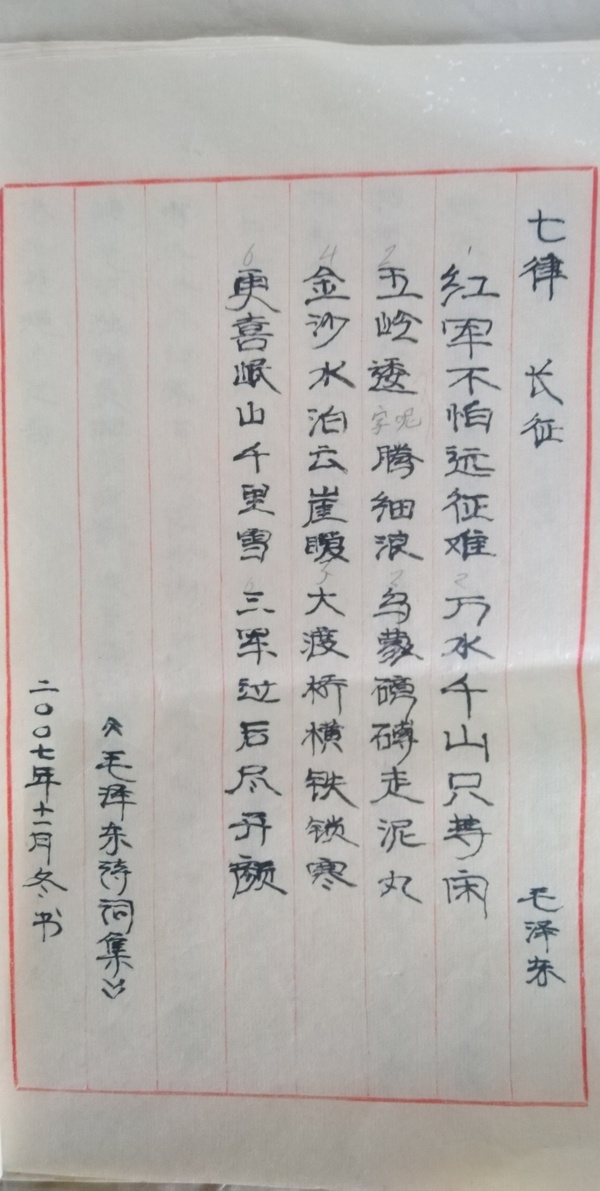 七律 长征 毛泽东
红军不怕远征难 万水千山只等闲
五岭逶字呢腾细浪 乌蒙磅礴走泥丸
金沙水泊云崖暖 大渡桥横铁锁寒
更喜岷山千里雪 三军过后尽开颜
《毛泽东诗词集》
二〇〇七年十一月冬书